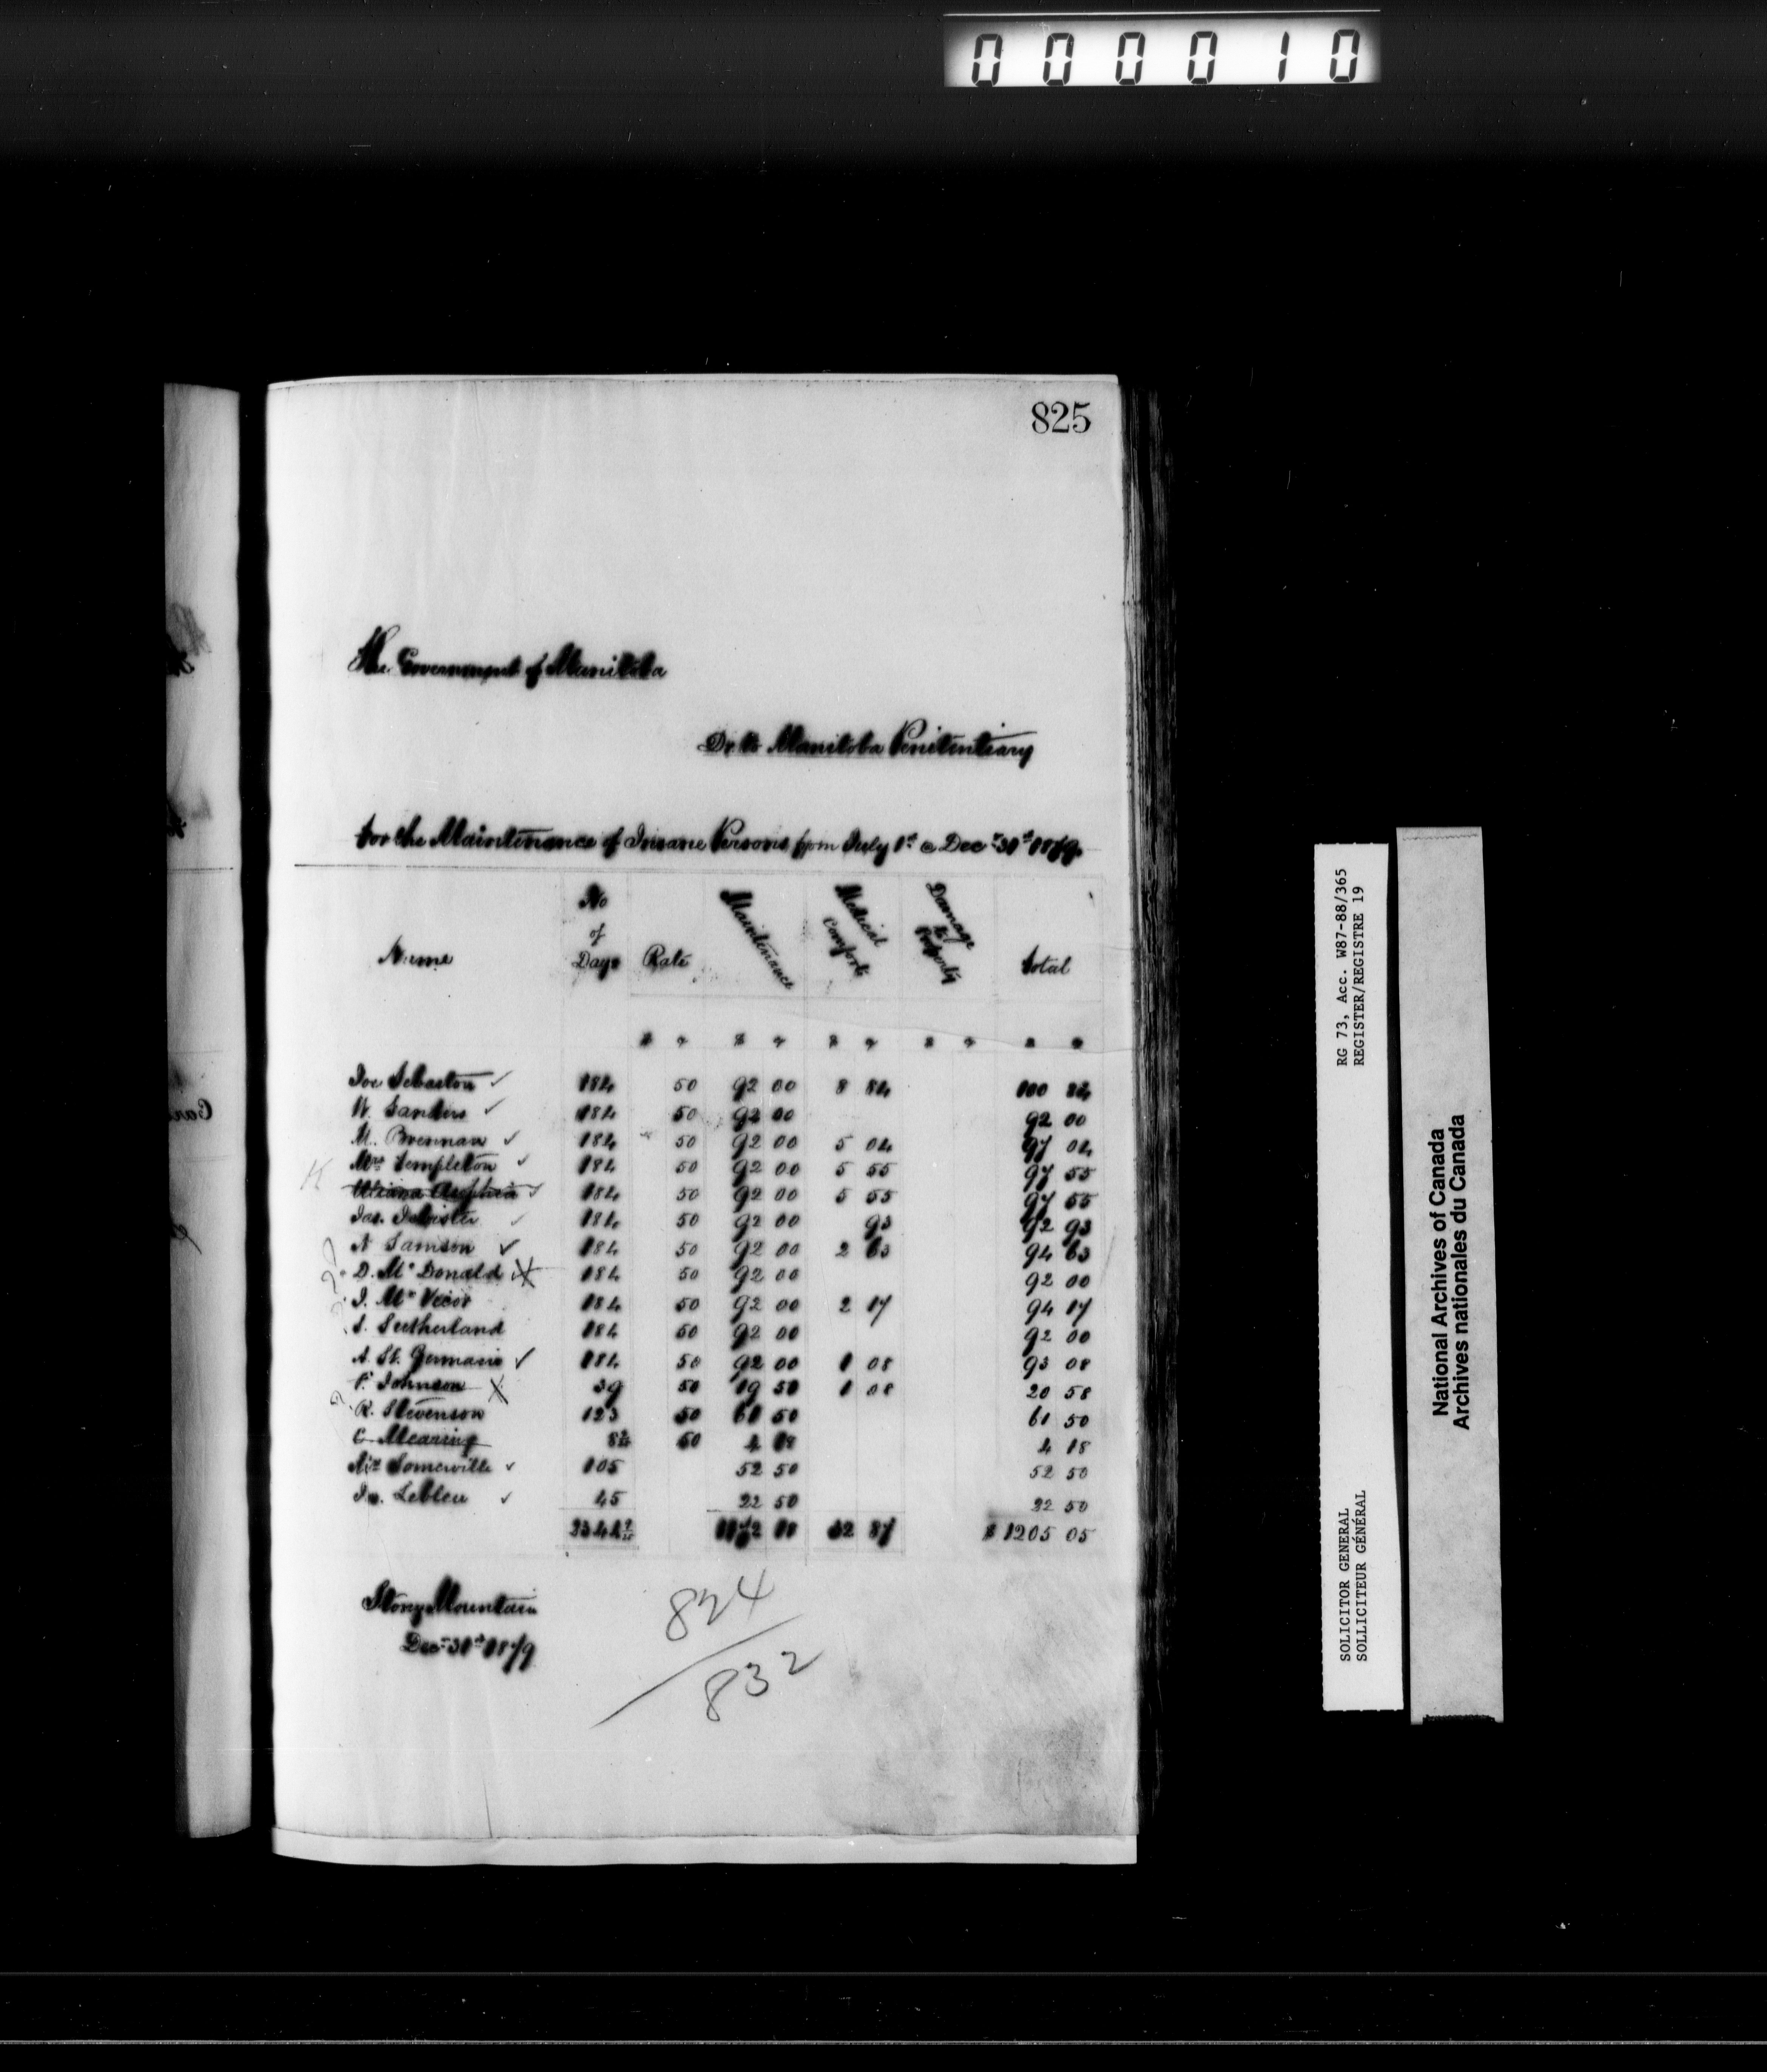 000010
825
The Government of Manitoba
Dr. to Manitoba Penitentiary
for the Maintenance of Insane Persons from July 1st @ Decr 31st 1879
Name No of Days Rate Maintenance Medical Comforts Damage to Property Total
$ ¢ $ ¢ $ ¢ $ ¢ $ ¢
Joe Sebaston ✓ 184 50 92 00 8 84 100 84
W. Sanders ✓ 184 50 92 00 92 00
M. Brennan ✓ 184 50 92 00 5 04 97 04
Mrs Templeton ✓ 184 50 92 00 5 55 97 55
✓ 184 50 92 00 5 55 97 55
Jas. Inkster ✓ 184 50 92 00 93 92 93
N Samson ✓ 184 50 92 00 2 63 94 63
D. Mc Donald 184 50 92 00 92 00
J. Mc Vicor 184 50 92 00 2 17 94 17
S. Sutherland 184 50 92 00 92 00
A. St. Germain ✓ 184 50 92 00 1 08 93 08
P. Johnson X 39 50 19 50 1 08 20 58
R. Stevenson 123 50 61 50 61 50
C Mearing 50 4 18 4 18
Somerville ✓ 105 52 50 52 50
Lebleu ✓ 45 22 50 22 50
1172 18 32 87 $ 1205 05
Stony Mountain
Decr 31st 1879
824
832
SOLICITOR GENERAL RG 73, Acc. W87-88/365
SOLLICITEUR GÉNÉRAL REGISTER/REGISTRE 19
National Archives of Canada
Archives nationales du Canada